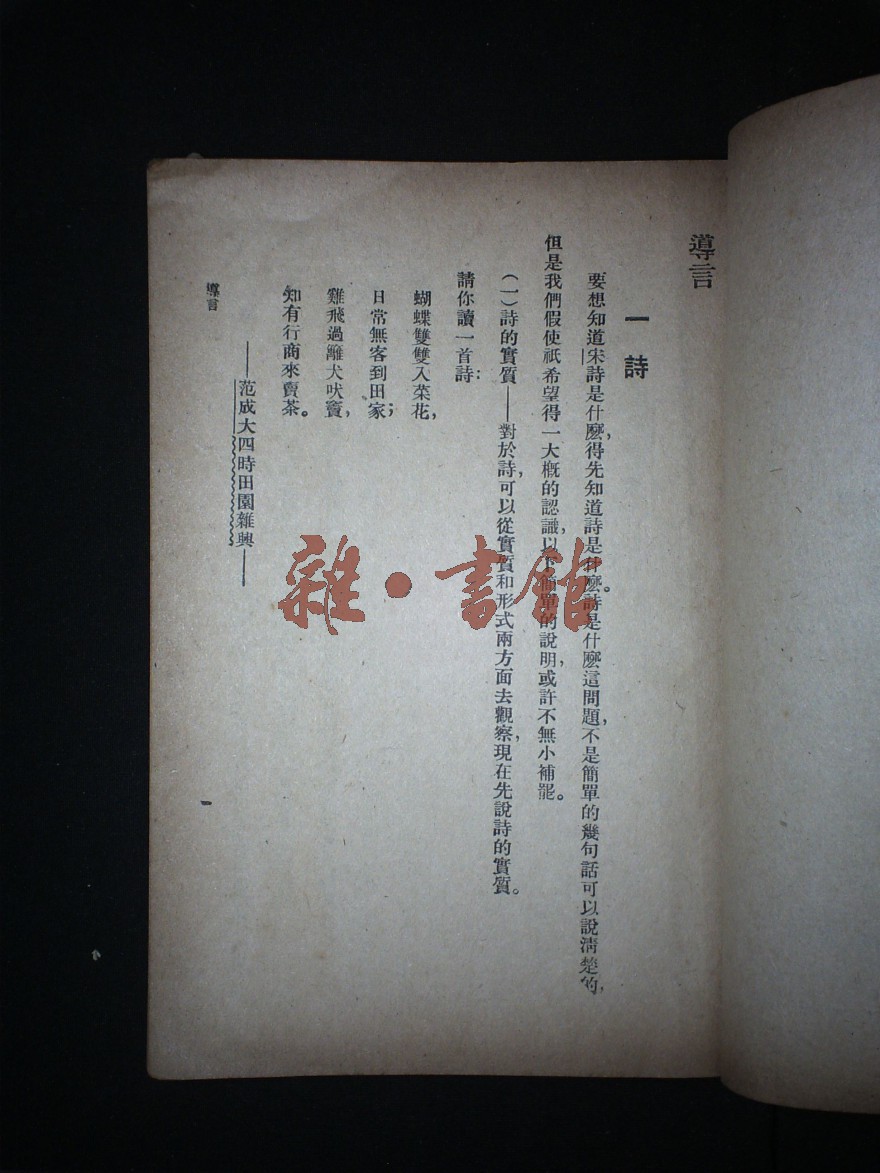 導言
一 詩
要想知道宋詩是什麼，得先知道詩是什麼。詩是什麼這問題，不是簡單的幾句話可以說清楚的，
但是我們假使祇希望得一大概的認識，以下簡單的說明，或許不無小補罷。
（一）詩的實質——對於詩，可以從實質和形式兩方面去觀察，現在先說詩的實質。
請你讀一首詩：
蝴蝶雙雙入菜花，
日常無客到田家；
雞飛過籬犬吠竇，
知有行商來賣茶。
——范成大四時田園雜興——
導言
一
雜·書館